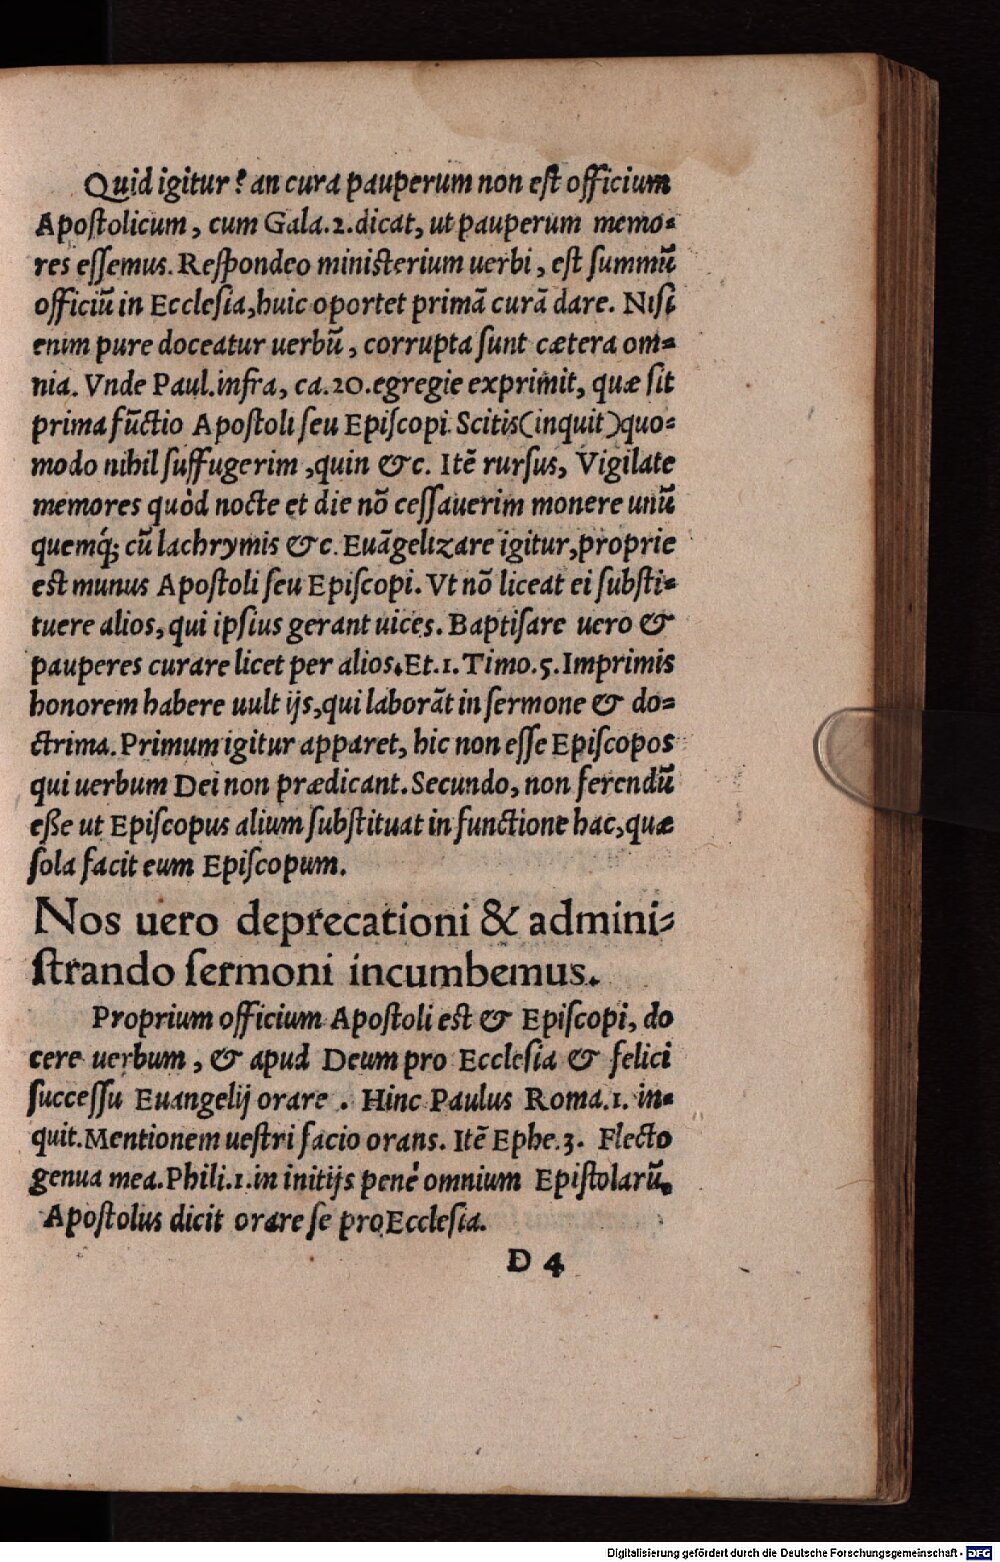 Quid igitur? an cura pauperum non est officium
Apostolicum, cum Gala.2.dicat, ut pauperum memo=
res essemus. Respondeo ministerium uerbi, est summū
officiū in Ecclesia, huic oportet primā curā dare. Nisi
enim pure doceatur uerbū, corrupta sunt cætera om=
nia. Vnde Paul.infra, ca.20.egregie exprimit, quæ sit
prima fūctio Apostoli seu Episcopi. Scitis(inquit)quo=
modo nihil suffugerim, quin &c. Itē rursus, Vigilate
memores quòd nocte et die nō cessauerim monere unū
quemq́; cū lachrymis &c. Euāgelizare igitur, proprie
est munus Apostoli seu Episcopi. Vt nō liceat ei substi=
tuere alios, qui ipsius gerant uices. Baptisare uero &
pauperes curare licet per alios. Et.1.Timo.5.Imprimis
honorem habere uult ijs, qui laborāt in sermone & do=
ctrima. Primum igitur apparet, hic non esse Episcopos
qui uerbum Dei non prædicant. Secundo, non ferendū
eße ut Episcopus alium substituat in functione hac, quæ
sola facit eum Episcopum.
Nos uero deprecationi & admini=
strando sermoni incumbemus.
Proprium officium Apostoli est & Episcopi, do
cere uerbum, & apud Deum pro Ecclesia & felici
successu Euangelij orare. Hinc Paulus Roma.1. in=
quit. Mentionem uestri facio orans. Itē Ephe.3. Flecto
genua mea. Phili.1.in initijs penè omnium Epistolarū.
Apostolus dicit orare se pro Ecclesia.
D 4
Digitalisierung gefördert durch die Deutsche Forschungsgemeinschaft - DFG